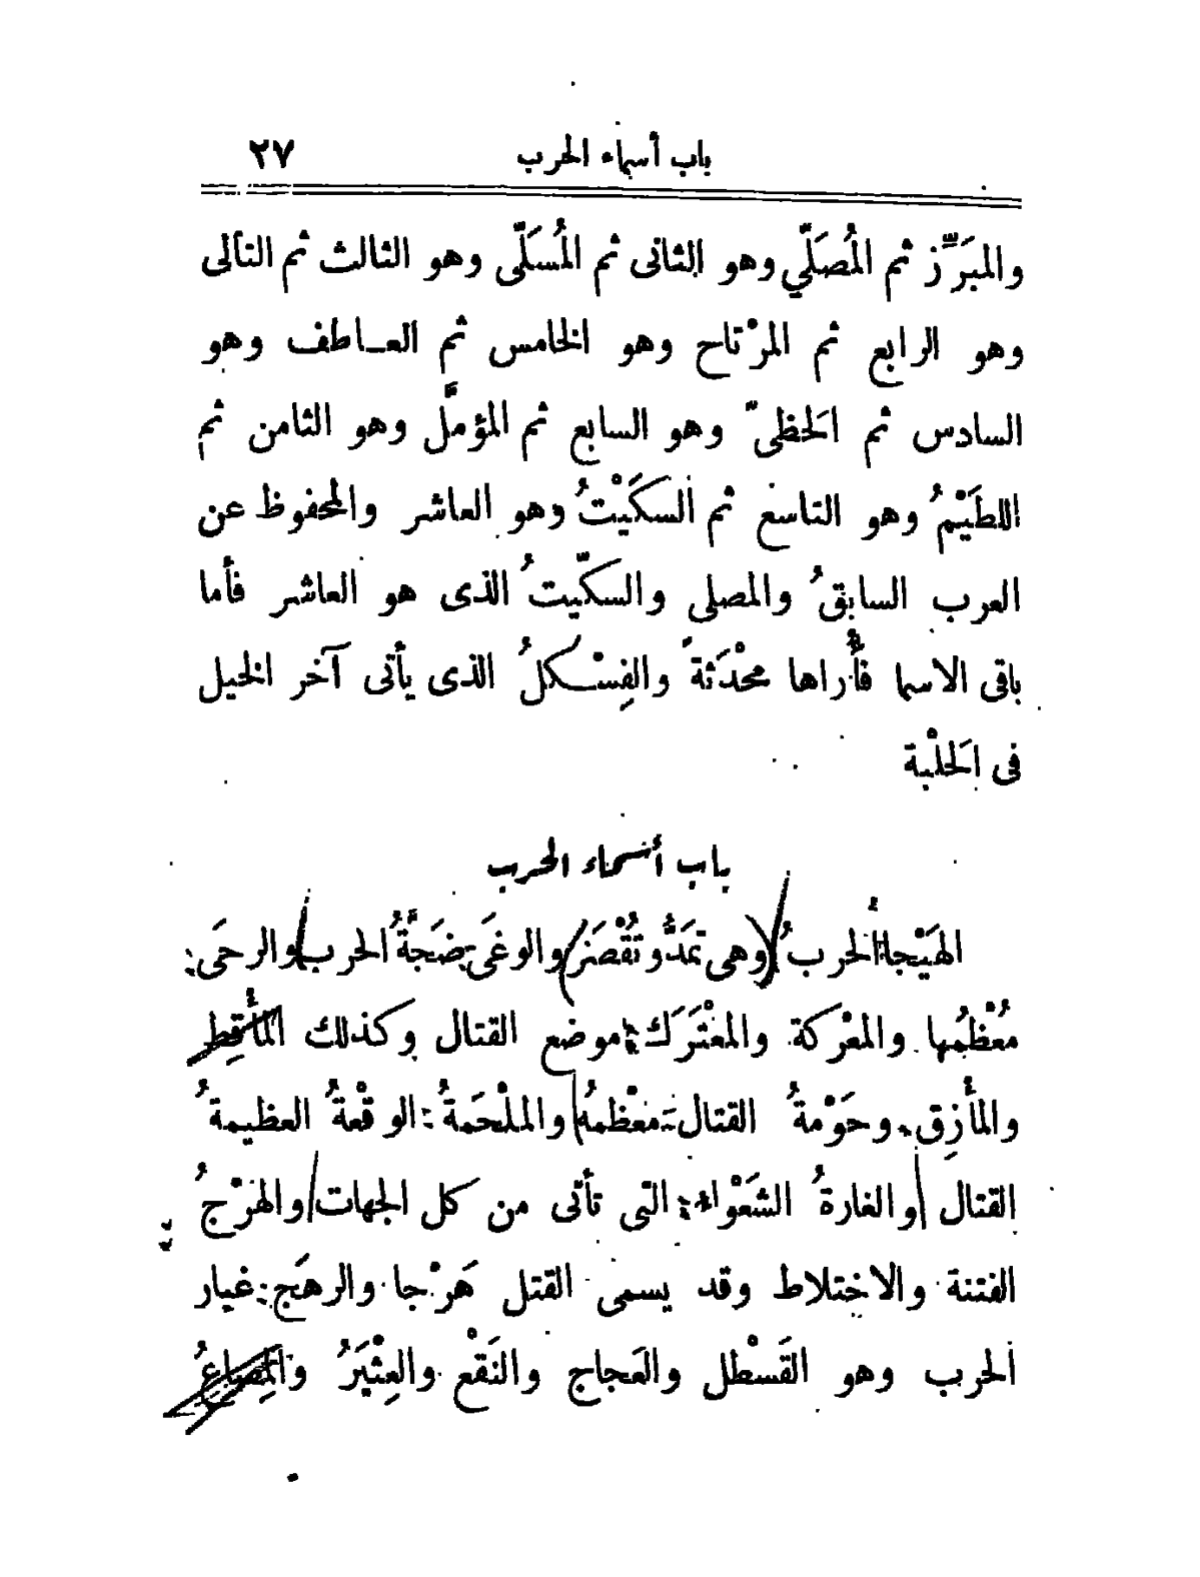 باب أسماء الحرب ٢٧
والمبَرِّز ثم المُصَلِّي وهو الثانى ثم المُسَلّى وهو الثالث ثم التالى
وهو الرابع ثم المرْتاح وهو الخامس ثم العـاطف وهو
السادس ثم الَحظىّ وهو السابع ثم المؤمَّل وهو الثامن ثم
اللطَيْمُ وهو التاسع ثم السكَيْتُ وهو العاشر والمحفوظ عن
العرب السابقُ والمصلى والسكّيتُ الذى هو العاشر فأما
باقى الاسما فأُراها محْدَثةً والفِسْـكلُ الذى يأتى آخر الخيل
فى الَحلْبة
باب أسماء الحرب
الهَيْجا الحربُ (وهى تمَدُّ وتُقْصَر) والوغَى ضَجَّةُ الحرب والرحَى:
مُعْظمُها والمعْركة والمعْتَرَك: موضع القتال وكذلك المأْقِط
والمأْزِق. وحَوْمةُ القتال: معْظمهُ والملْحَمةُ: الوقْعةُ العظيمةُ
القتال والغارةُ الشعَوْاء: التى تأتى من كل الجهات والهرْجُ
الفتنة والاختلاط وقد يسمى القتل هَرْجا والرهَج: غبار
الحرب وهو القَسْطل والعجاج والنَقْع والعِثْيَرُ والمِصاعُ